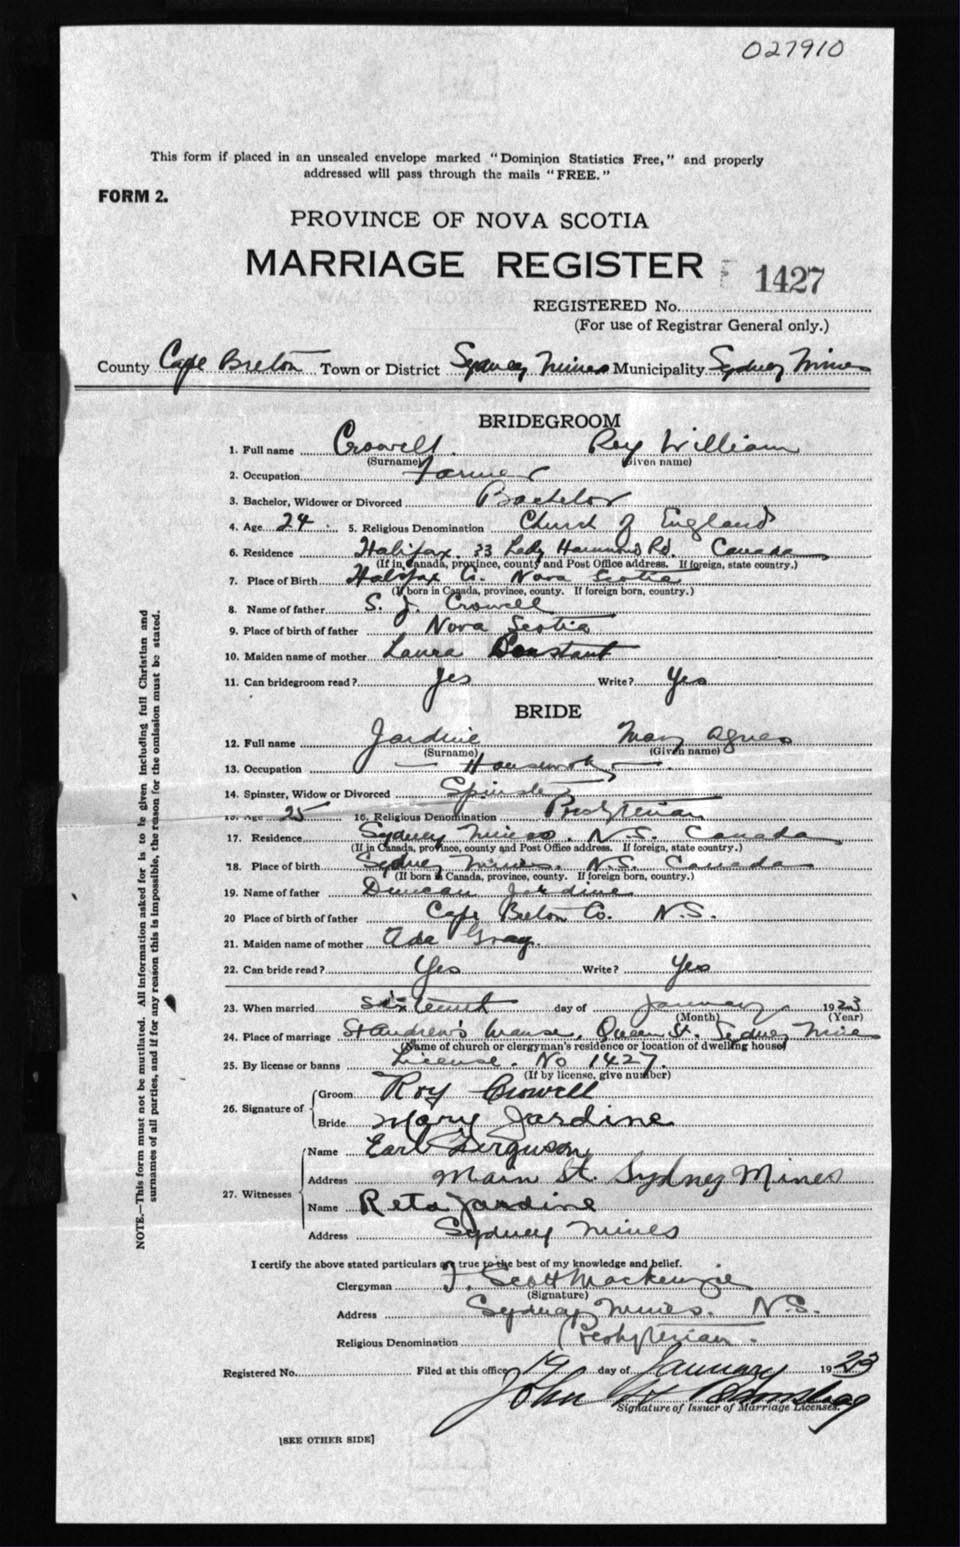 027910
This form if placed in an unsealed envelope marked "Dominion Statistics Free," and properly
addressed will pass through the mails "FREE."
FORM 2.
PROVINCE OF NOVA SCOTIA
MARRIAGE REGISTER
1427
REGISTERED No.
(For use of Registrar General only.)
County Cape Breton Town or District Sydney Mines Municipality Sydney Mines
BRIDEGROOM
1. Full name Crowell Roy William
(Surname) (Given name)
2. Occupation Farmer
3. Bachelor, Widower or Divorced Bachelor
4. Age 24 5. Religious Denomination Church of England
6. Residence Halifax. 33 Lady Hammond Rd. Canada
(If in Canada, province, county and Post Office address. If foreign, state country.)
7. Place of Birth Halifax Co. Nova Scotia
(If born in Canada, province, county. If foreign born, country.)
8. Name of father S. J. Crowell
9. Place of birth of father Nova Scotia
10. Maiden name of mother Laura
11. Can bridegroom read? Yes Write? Yes
BRIDE
12. Full name Jardine Mary Agnes
(Surname) (Given name)
13. Occupation Housework
14. Spinster, Widow or Divorced Spinster
15. Age 25 16. Religious Denomination Presbyterian
17. Residence Sydney Mines. N.S. Canada
(If in Canada, province, county and Post Office address. If foreign, state country.)
18. Place of birth Sydney Mines. N.S. Canada
(If born in Canada, province, county. If foreign born, country.)
19. Name of father Duncan Jardine
20 Place of birth of father Cape Breton Co. N.S.
21. Maiden name of mother Ada Gray.
22. Can bride read? Yes Write? Yes
23. When married sixteenth day of January 1923
(Month) (Year)
24. Place of marriage St Andrew's Manse, Queen St. Sydney Mines
(Name of church or clergyman's residence or location of dwelling house)
25. By license or banns License. No 1427.
(If by license, give number)
26. Signature of Groom Roy Crowell
Bride Mary Jardine
27. Witnesses Name Earl Ferguson
Address Main St. Sydney Mines
Name Reta Jardine
Address Sydney Mines
I certify the above stated particulars are true to the best of my knowledge and belief.
Clergyman F. Scott Mackenzie
(Signature)
Address Sydney Mines. N.S.
Religious Denomination Presbyterian.
Registered No. Filed at this office 19 day of January 1923
John
Signature of Issuer of Marriage Licenses.
[SEE OTHER SIDE]
NOTE.—This form must not be mutilated. All information asked for is to be given including full Christian and
surnames of all parties, and if for any reason this is impossible, the reason for the omission must be stated.